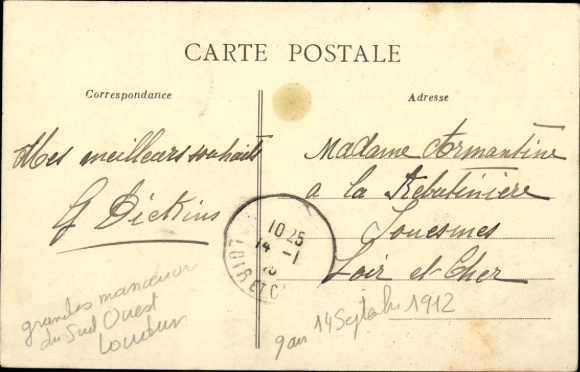 CARTE POSTALE
Correspondance
Adresse
Mes meilleurs souhaits
G Dickins
Madame Armantine
a la Rebatinière
Souesmes
Loir et Cher
10 25
14 -1
LOIR ET C
grandes manoeuvres
du Sud Ouest
Loudun
9 au 14 Septembre 1912